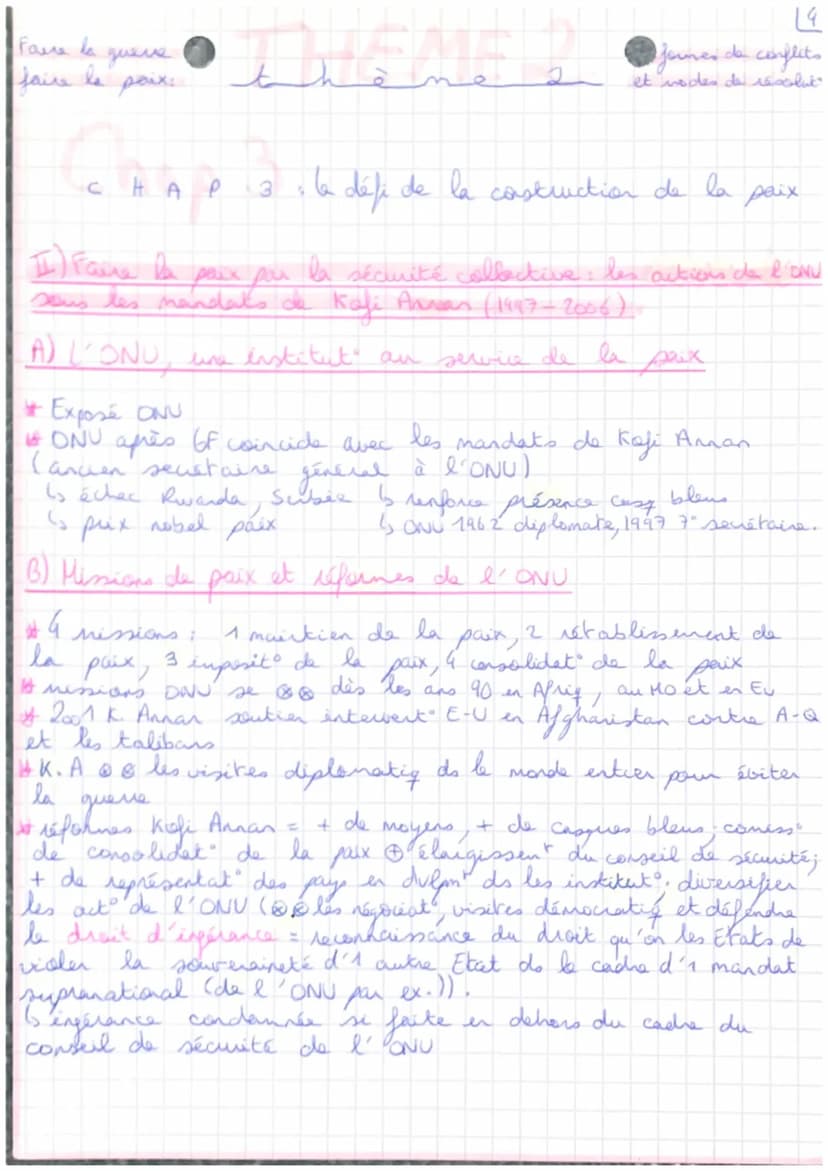 4
Faire la guerre
faire la paix:
THEME 2
thème 2
formes de conflits
et modes de résolut°
Chap 3
CHAP 3 : le défi de la construction de la paix
II) Faire la paix par la sécurité collective : les actions de l'ONU
sous les mandats de Kofi Annan (1997-2006)
A) L'ONU, une institut° au service de la paix
* Exposé ONU
* ONU après GF coincide avec les mandats de Kofi Annan
(ancien secrétaire général à l'ONU)
↳ échec Rwanda, Serbie ↳ renforce présence casq bleus
↳ prix nobel paix ↳ ONU 1962 diplomate, 1997 7° secrétaire.
B) Missions de paix et réformes de l'ONU
* 4 missions : 1 maintien de la paix, 2 rétablissement de
la paix, 3 imposit° de la paix, 4 consolidat° de la paix
* missions ONU se ⊗⊗ dès les ans 90 en Afriq, au MO et en Eu
* 2001 K. Annan soutien intervent° E-U en Afghanistan contre A-Q
et les talibans
* K.A ⊗⊗ les visites diplomatiq ds le monde entier pour éviter
la guerre
* réformes Kofi Annan = + de moyens, + de casques bleus; comiss°
de consolidat° de la paix ⊕ élargissent du conseil de sécurité;
+ de représentat° des pays en dvlpmt ds les institut°. diversifier
les act° de l'ONU (⊗⊗ les négociat°, visites démocratiq et défendre
le droit d'ingérance = reconnaissance du droit qu'on les Etats de
violer la souveraineté d'1 autre Etat ds le cadre d'1 mandat
supranational (de l'ONU par ex.)).
↳ ingérance condamnée si faite en dehors du cadre du
conseil de sécurité de l'ONU